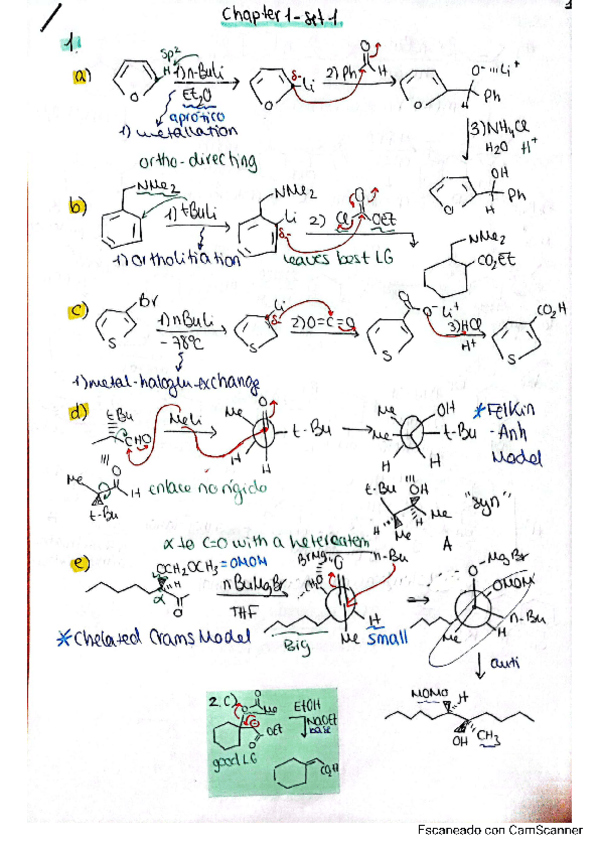 Chapter 1 - set 1
1
1.
a)
Sp2
H
1) n-BuLi
Et2O
aprótico
O
δ-
Li
2) Ph
O
H
O- Li+
Ph
1) metallation
ortho-directing
3) NH4Cl
H2O H+
OH
Ph
H
O
b)
NMe2
1) tBuLi
NMe2
Li
δ-
2)
Cl
O
OEt
1) Ortholitiation
leaves best LG
NMe2
CO2Et
c)
Br
S
1) nBuLi
-78ºC
Li
δ-
S
2) O=C=O
O
O- Li+
S
3) HCl
H+
CO2H
S
1) metal-halogen-exchange
d)
tBu
CHO
MeLi
Me
O
t-Bu
H
H
Me
OH
Me
t-Bu
H
H
*Felkin
-Anh
Model
Me
O
H
t-Bu
enlace no rígido
t-Bu
OH
H
Me
Me
H
"syn"
A
α to C=O with a heteroatom
e)
OCH2OCH3 = OMOM
H
α
O
nBuMgBr
THF
BrMg
O
n-Bu
H
Me
small
Big
O-MgBr
OMOM
n-Bu
H
Me
*Chelated Crams Model
anti
MOMO
H
OH
CH3
2. c)
O
O
Me
OEt
O
good LG
EtOH
NaOEt
base
CO2H
Escaneado con CamScanner